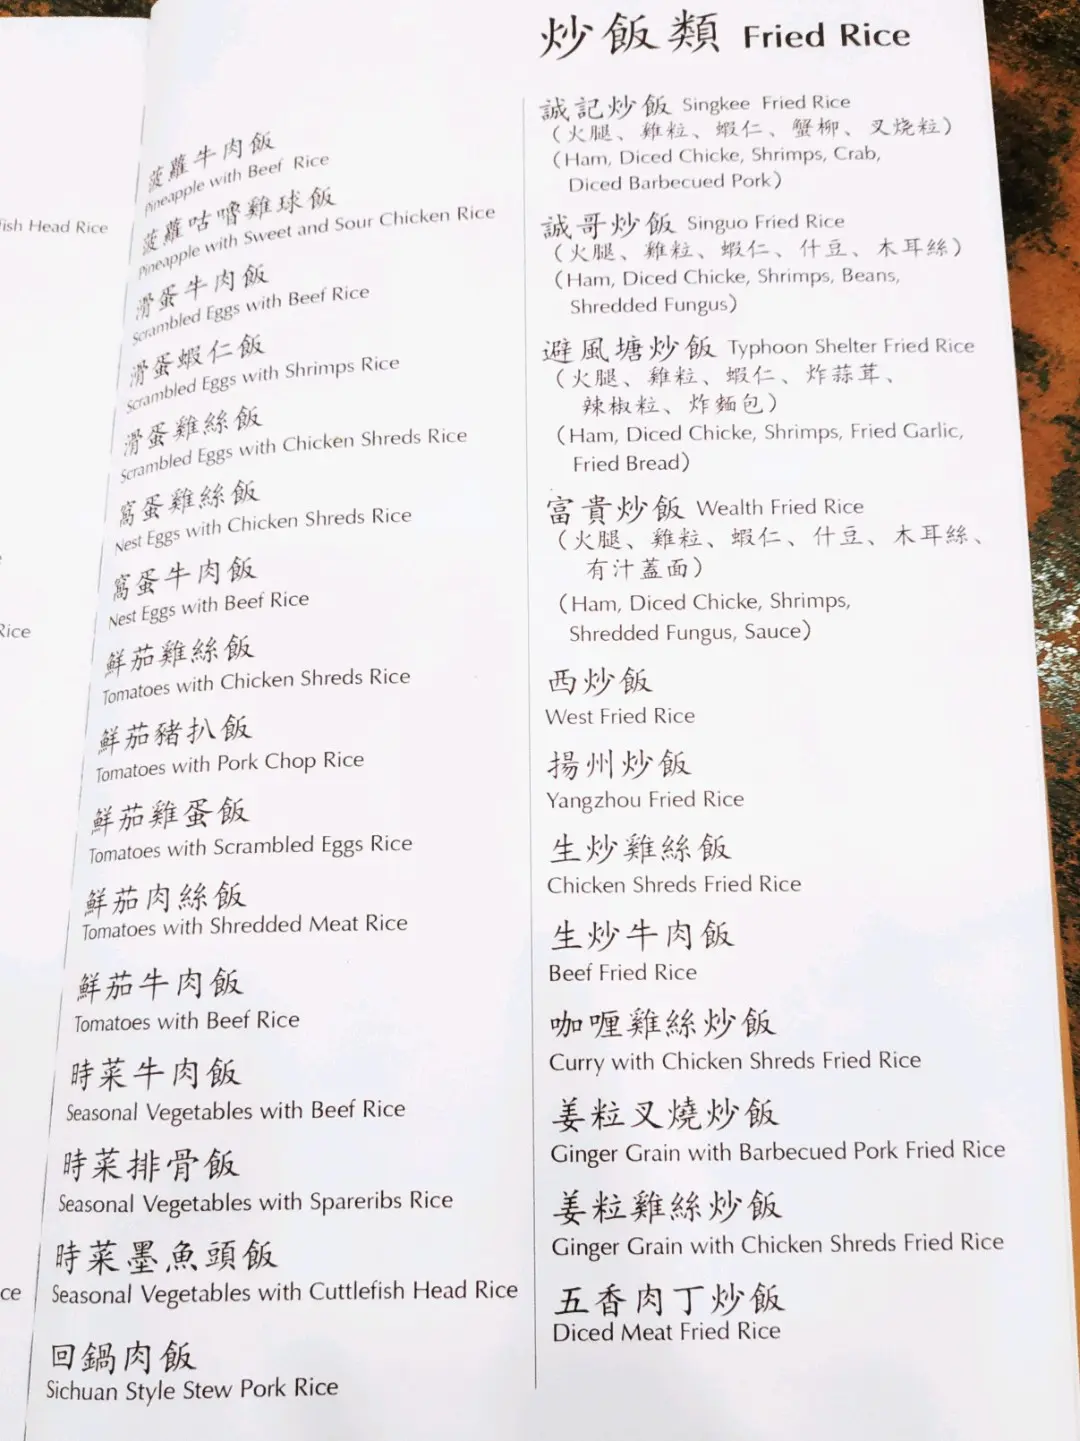 fish Head Rice
Rice
ce
菠蘿牛肉飯
Pineapple with Beef Rice
菠蘿咕嚕雞球飯
Pineapple with Sweet and Sour Chicken Rice
滑蛋牛肉飯
Scrambled Eggs with Beef Rice
滑蛋蝦仁飯
Scrambled Eggs with Shrimps Rice
滑蛋雞絲飯
Scrambled Eggs with Chicken Shreds Rice
窩蛋雞絲飯
Nest Eggs with Chicken Shreds Rice
窩蛋牛肉飯
Nest Eggs with Beef Rice
鮮茄雞絲飯
Tomatoes with Chicken Shreds Rice
鮮茄豬扒飯
Tomatoes with Pork Chop Rice
鮮茄雞蛋飯
Tomatoes with Scrambled Eggs Rice
鮮茄肉絲飯
Tomatoes with Shredded Meat Rice
鮮茄牛肉飯
Tomatoes with Beef Rice
時菜牛肉飯
Seasonal Vegetables with Beef Rice
時菜排骨飯
Seasonal Vegetables with Spareribs Rice
時菜墨魚頭飯
Seasonal Vegetables with Cuttlefish Head Rice
回鍋肉飯
Sichuan Style Stew Pork Rice
炒飯類 Fried Rice
誠記炒飯 Singkee Fried Rice
（火腿、雞粒、蝦仁、蟹柳、叉烧粒）
（Ham, Diced Chicke, Shrimps, Crab,
Diced Barbecued Pork）
誠哥炒飯 Singuo Fried Rice
（火腿、雞粒、蝦仁、什豆、木耳絲）
（Ham, Diced Chicke, Shrimps, Beans,
Shredded Fungus）
避風塘炒飯 Typhoon Shelter Fried Rice
（火腿、雞粒、蝦仁、炸蒜茸、
辣椒粒、炸麵包）
（Ham, Diced Chicke, Shrimps, Fried Garlic,
Fried Bread）
富貴炒飯 Wealth Fried Rice
（火腿、雞粒、蝦仁、什豆、木耳絲、
有汁蓋面）
（Ham, Diced Chicke, Shrimps,
Shredded Fungus, Sauce）
西炒飯
West Fried Rice
揚州炒飯
Yangzhou Fried Rice
生炒雞絲飯
Chicken Shreds Fried Rice
生炒牛肉飯
Beef Fried Rice
咖喱雞絲炒飯
Curry with Chicken Shreds Fried Rice
姜粒叉燒炒飯
Ginger Grain with Barbecued Pork Fried Rice
姜粒雞絲炒飯
Ginger Grain with Chicken Shreds Fried Rice
五香肉丁炒飯
Diced Meat Fried Rice